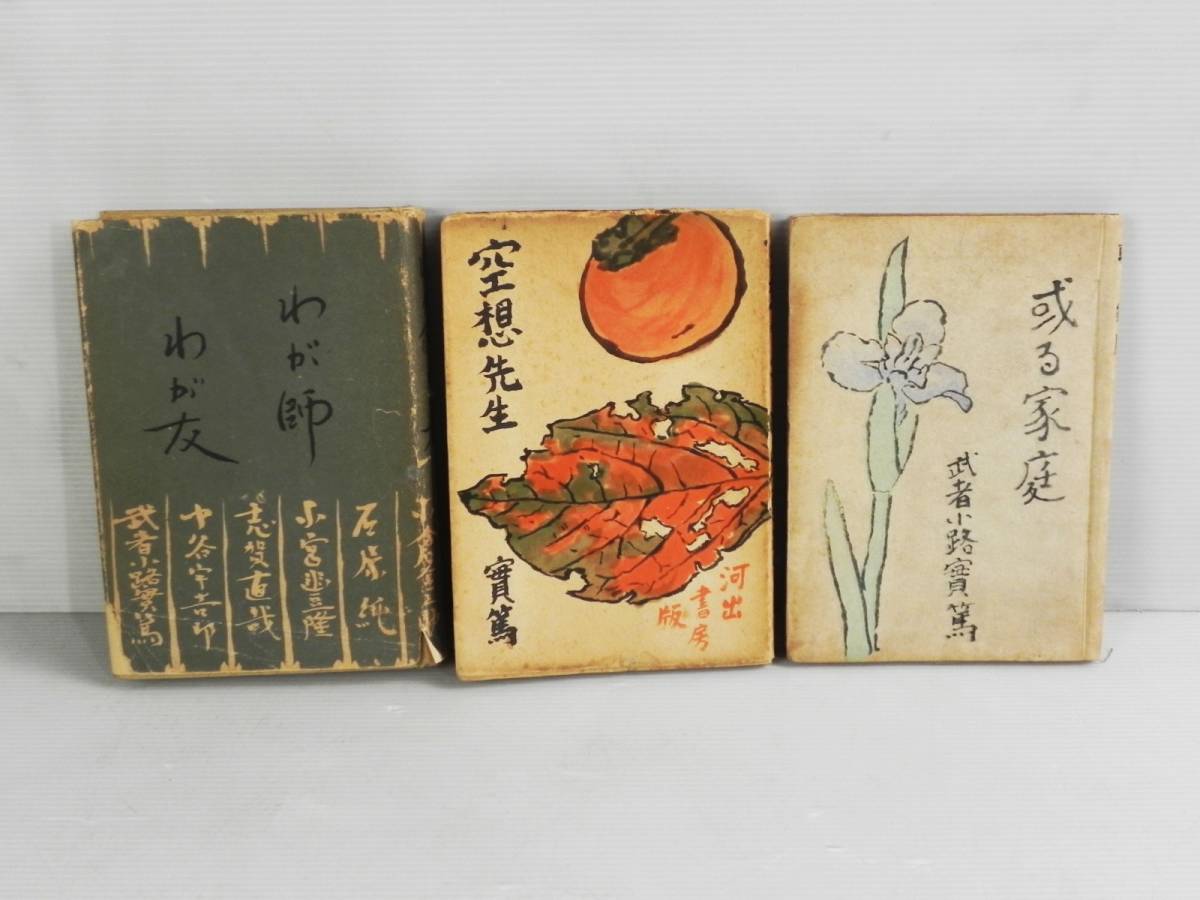 わが師
わが友
石原純
小宮豊隆
志賀直哉
中谷宇吉郎
武者小路實篤
空想先生
實篤
河出
書房
版
或る家庭
武者小路實篤